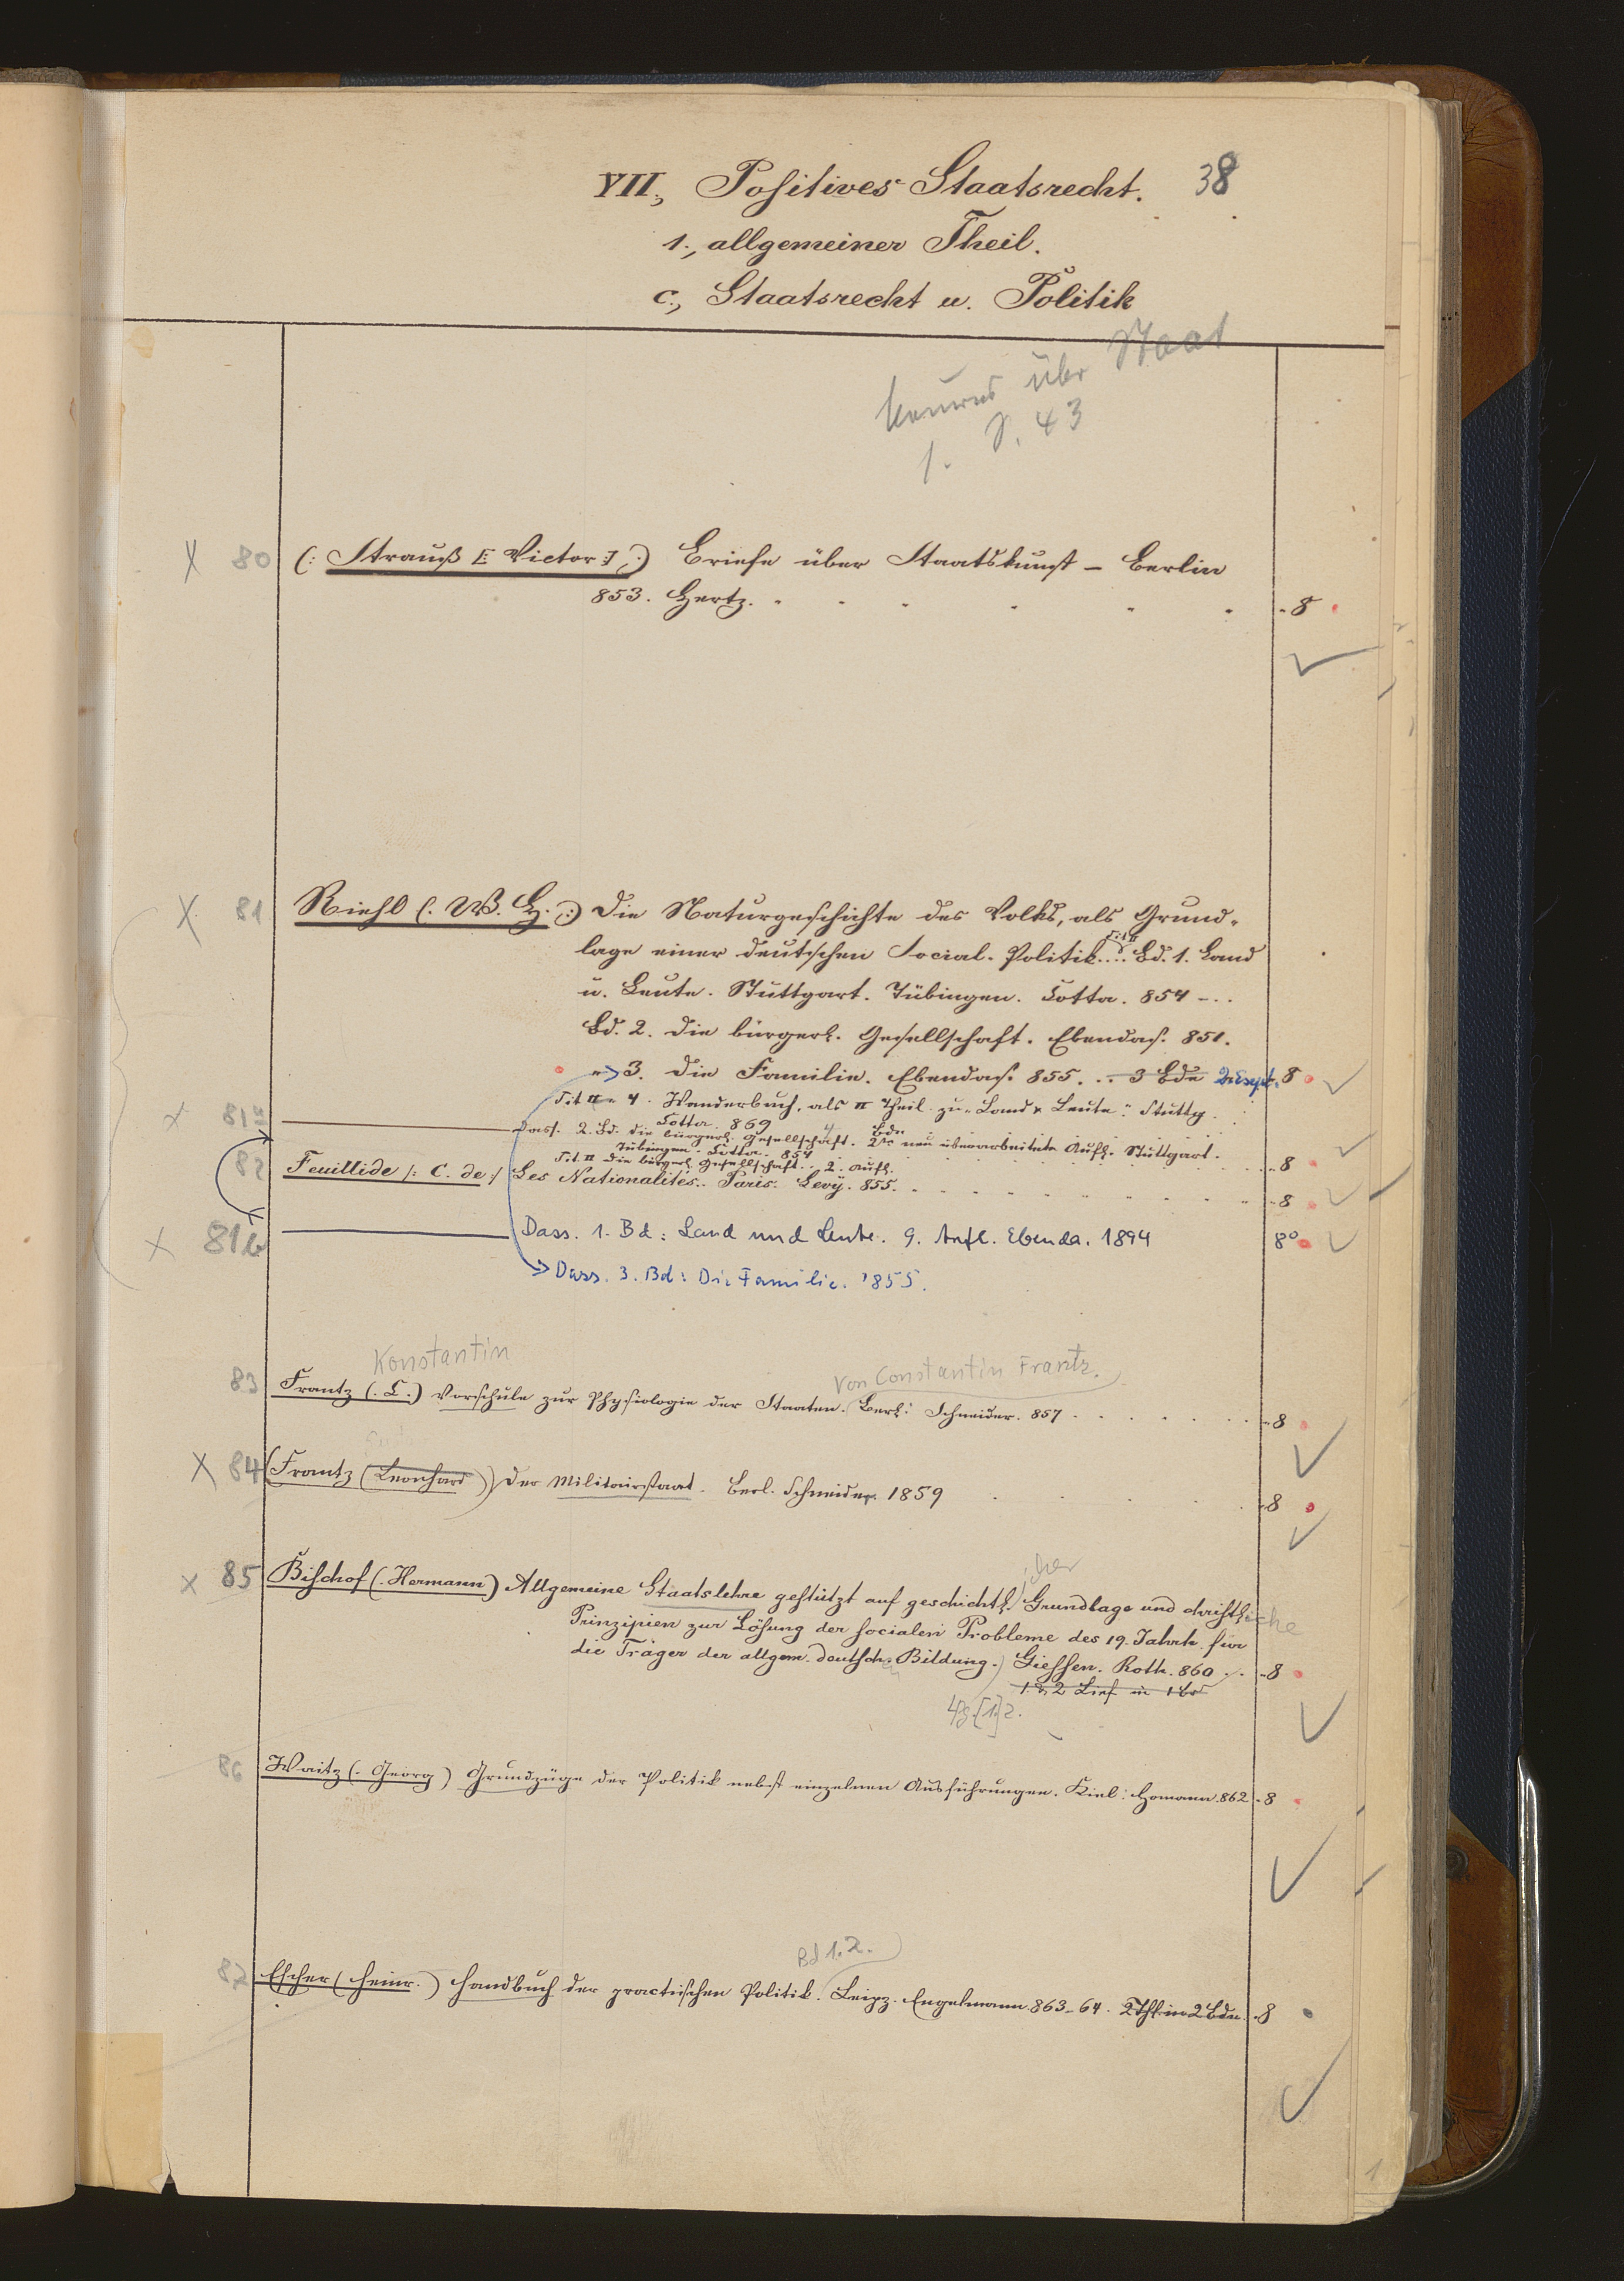 VII., Positives Staatsrecht. 38
1., allgemeiner Theil.
c., Staatsrecht u. Politik
über Staat
S. 43
X 80 (: Strauß [: Victor :] ;) Briefe über Staatskunst – Berlin
853. Hertz. 8
X 81 Riehl (. W. H. :) Die Naturgeschichte des Volks, als Grund-
lage einer deutschen Social-Politik.... Bd. 1. Land
u. Leute. Stuttgart. Tübingen. Cotta. 854 -..
Bd. 2. Die bürgerl. Gesellschaft. Ebendas. 851.
" 3. Die Familie. Ebendas. 855. .. 3 Bde 8
Tit II " 4. Wanderbuch, als II Theil zu "Land u Leute." Stuttg.
Cotta. 869
X 81a Dass. 2. Bd. die bürgerl. Gesellschaft. 2te neu überarbeitete Aufl. Stuttgart.
Tübingen. Cotta. 854 8
Tit II Die bürgerl. Gesellschaft. 2. Aufl.
82 Feuillide /: C. de :/ Les Nationalités.. Paris. Levÿ. 855. 8
X 81b Dass. 1. Bd: Land und Leute. 9. Aufl. Ebenda. 1894 8°
Dass. 3. Bd: Die Familie. 1855.
Konstantin
von Constantin Frantz.
83 Frantz (. C.) Vorschule zur Physiologie der Staaten. Berl: Schneider. 857 8
X 84 (Frantz (Leonhard)) Der Militairstaat. Berl. Schneider. 1859 8
icher
X 85 Bischof (. Hermann) Allgemeine Staatslehre gestützt auf geschichtl. Grundlage und christliche
Prinzipien zur Lösung der socialen Probleme des 19. Jahrh. für
die Träger der allgem. deutschen Bildung.) Giessen. Roth. 860 8
1 & 2 Lief in 1 Bd
Lfg. [1.] 2.
86 Waitz (. Georg) Grundzüge der Politik nebst einzelnen Ausführungen. Kiel: Homann. 862 8
Bd 1. 2.
87 Escher (Heinr.) Handbuch der practischen Politik. Leipz. Engelmann. 863-64. 2 Thl in 2 Bdn. 8